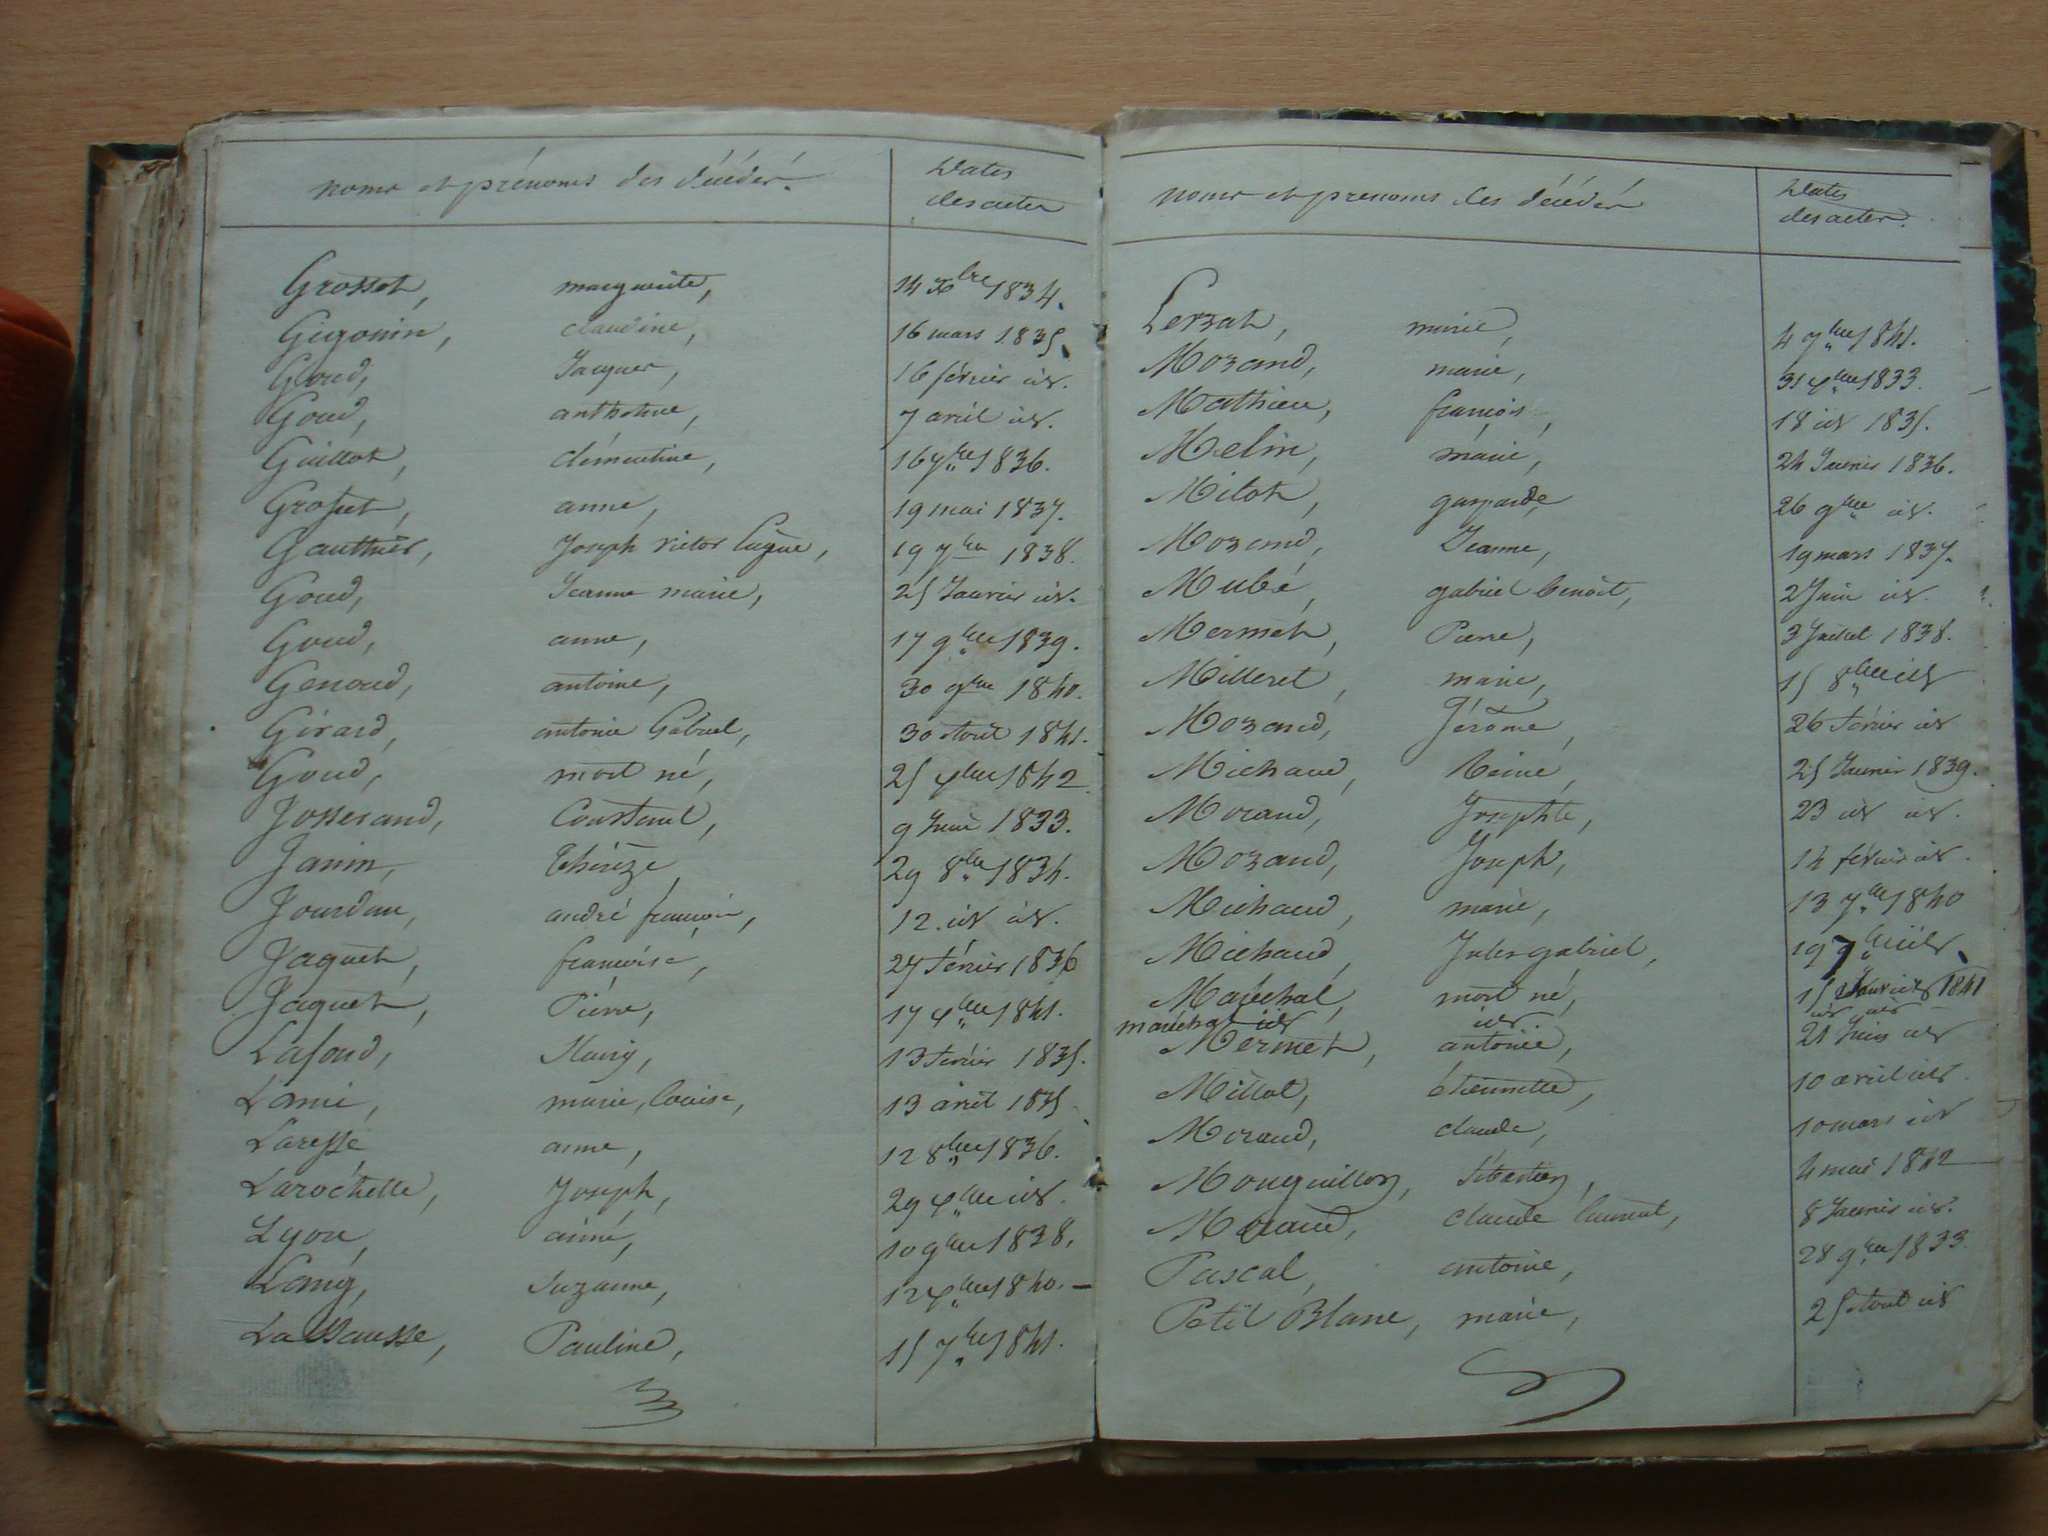 noms et prénoms des décédés.
Dates
des actes
Grosset, marguerite, 14 Xbre 1834.
Gugonin, claudine, 16 mars 1835.
Goud, Jacques, 16 février id.
Goud, anthelme, 7 avril id.
Guillot, clémentine, 16 7bre 1836.
Grosset, anne, 19 mai 1837.
Gauthier, Joseph victor Eugène, 19 7bre 1838.
Goud, Jeanne marie, 25 Janvier id.
Goud, anne, 17 9bre 1839.
Genoud, antoine, 30 9bre 1840.
Girard, antoine Gabriel, 30 Aout 1841.
Goud, mort né, 25 Xbre 1842
Josserand, Constant, 9 Juin 1833.
Janin, Thérèze 29 8bre 1834.
Jourdan, andré françois, 12. id id.
Jaquet, françoise, 27 février 1836
Jaquet, Pierre, 17 Xbre 1841.
Lafond, 13 février 1835.
Lamie, marie, Louise, 13 avril 1835
Laresse anne, 12 8bre 1836.
Larochette, Joseph, 29 Xbre id.
Lyon, aimé, 10 9bre 1838.
Lamy, Suzanne, 12 Xbre 1840.
La Bausse, Pauline, 15 7bre 1841.
noms et prenoms des décédés
Dates
des actes.
Lerzat, marie, 4 7bre 1841.
Morand, marie, 31 Xbre 1833.
Mathieu, françois, 18 id 1835.
Melin, marie, 24 Janvier 1836.
Milot, gasparde 26 9bre id.
Morand, Jeanne, 19 mars 1837.
Mubé, gabriel benoit, 2 Juin id.
Mermet, Pierre, 3 Juillet 1838.
Milleret, marie, 15 8bre id
Morand, Jérôme, 26 février id
Michaud, Reine, 25 Janvier 1839.
Morand, Josephte, 23 id id.
Morand, Joseph, 14 février id.
Michaud, marie, 13 7bre 1840
Michaud, Jules gabriel, 19 7bre id
Maréchal, mort né, 15 Janvier 1841
maréchal id id. id id
Mermet, antoine, 21 Juin id
Millat, étiennette, 10 avril id.
Morand, claude, 10 mars id
Monguillon, Sébastien, 4 mai 1842
Morand, claude Laurent, 8 Janvier id.
Pascal, antoine, 28 9bre 1833.
Petit Blanc, marie, 25 Aout id